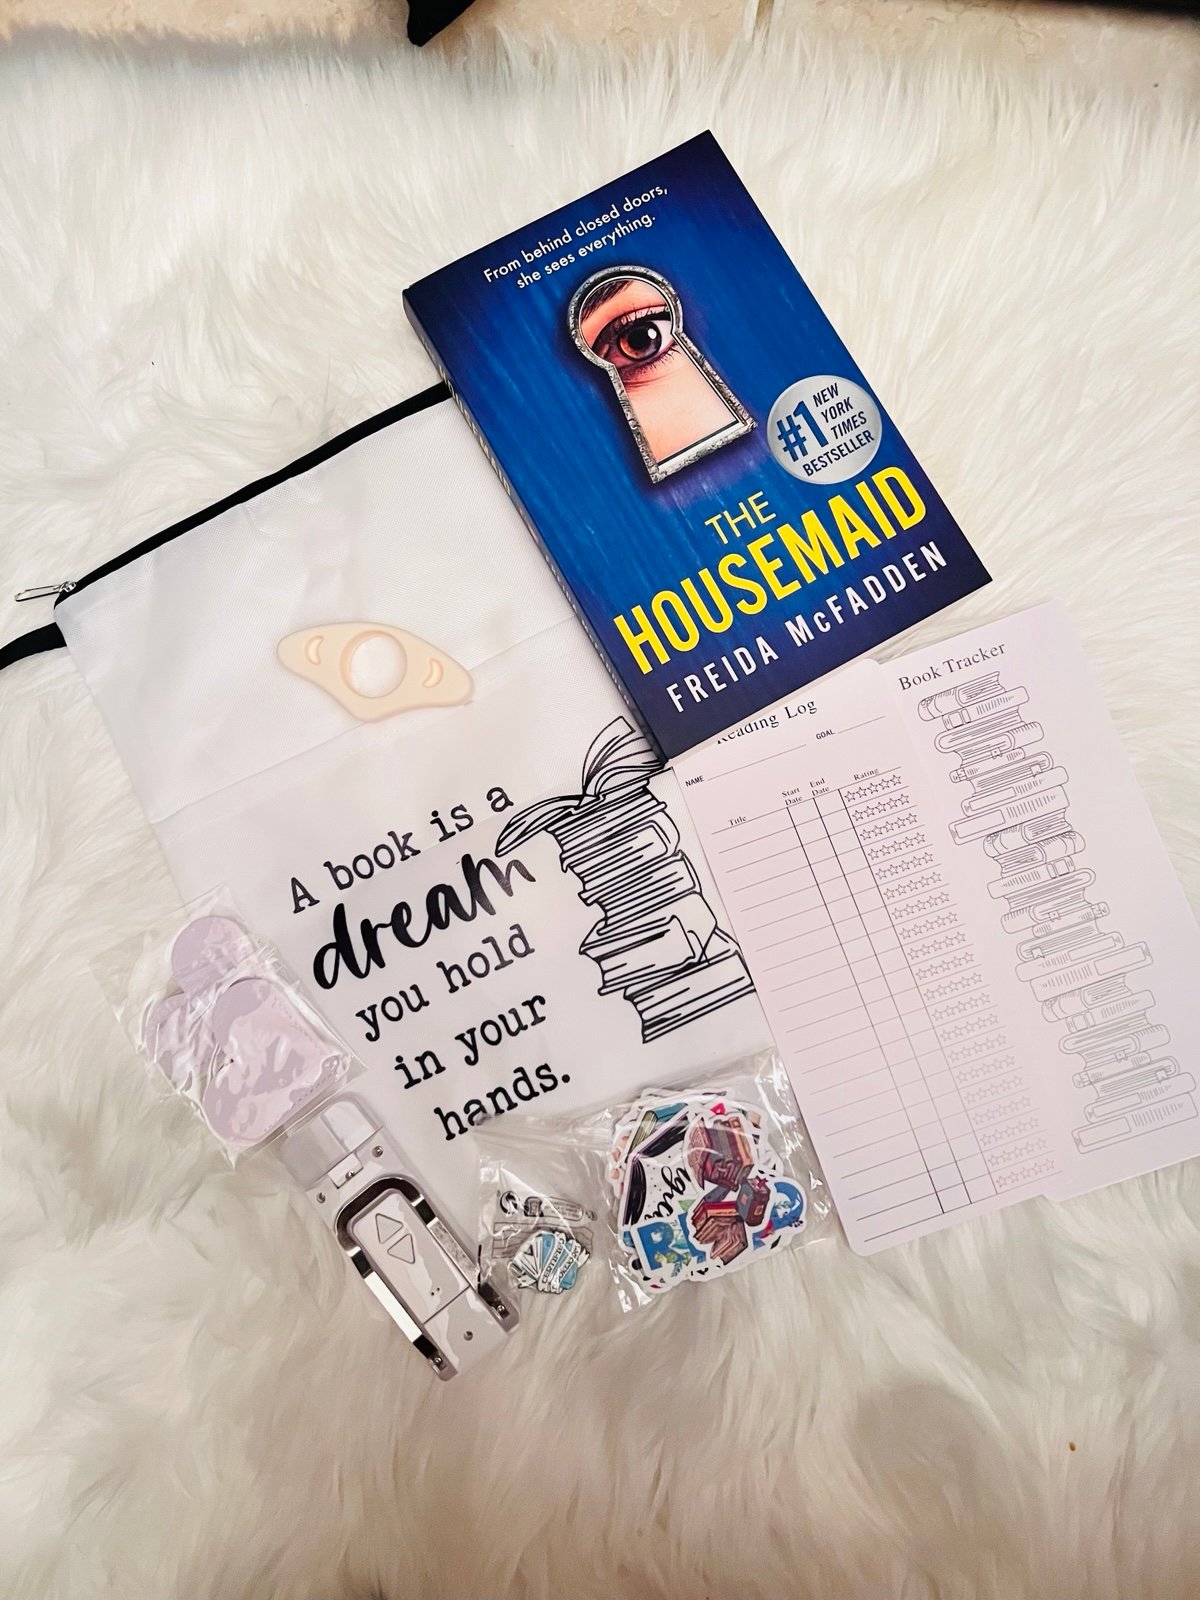 From behind closed doors,
she sees everything.
#1 NEW
YORK
TIMES
BESTSELLER
THE
HOUSEMAID
FREIDA McFADDEN
A book is a
dream
you hold
in your
hands.
Reading Log
NAME
GOAL
Title
Start
Date
End
Date
Rating
Book Tracker